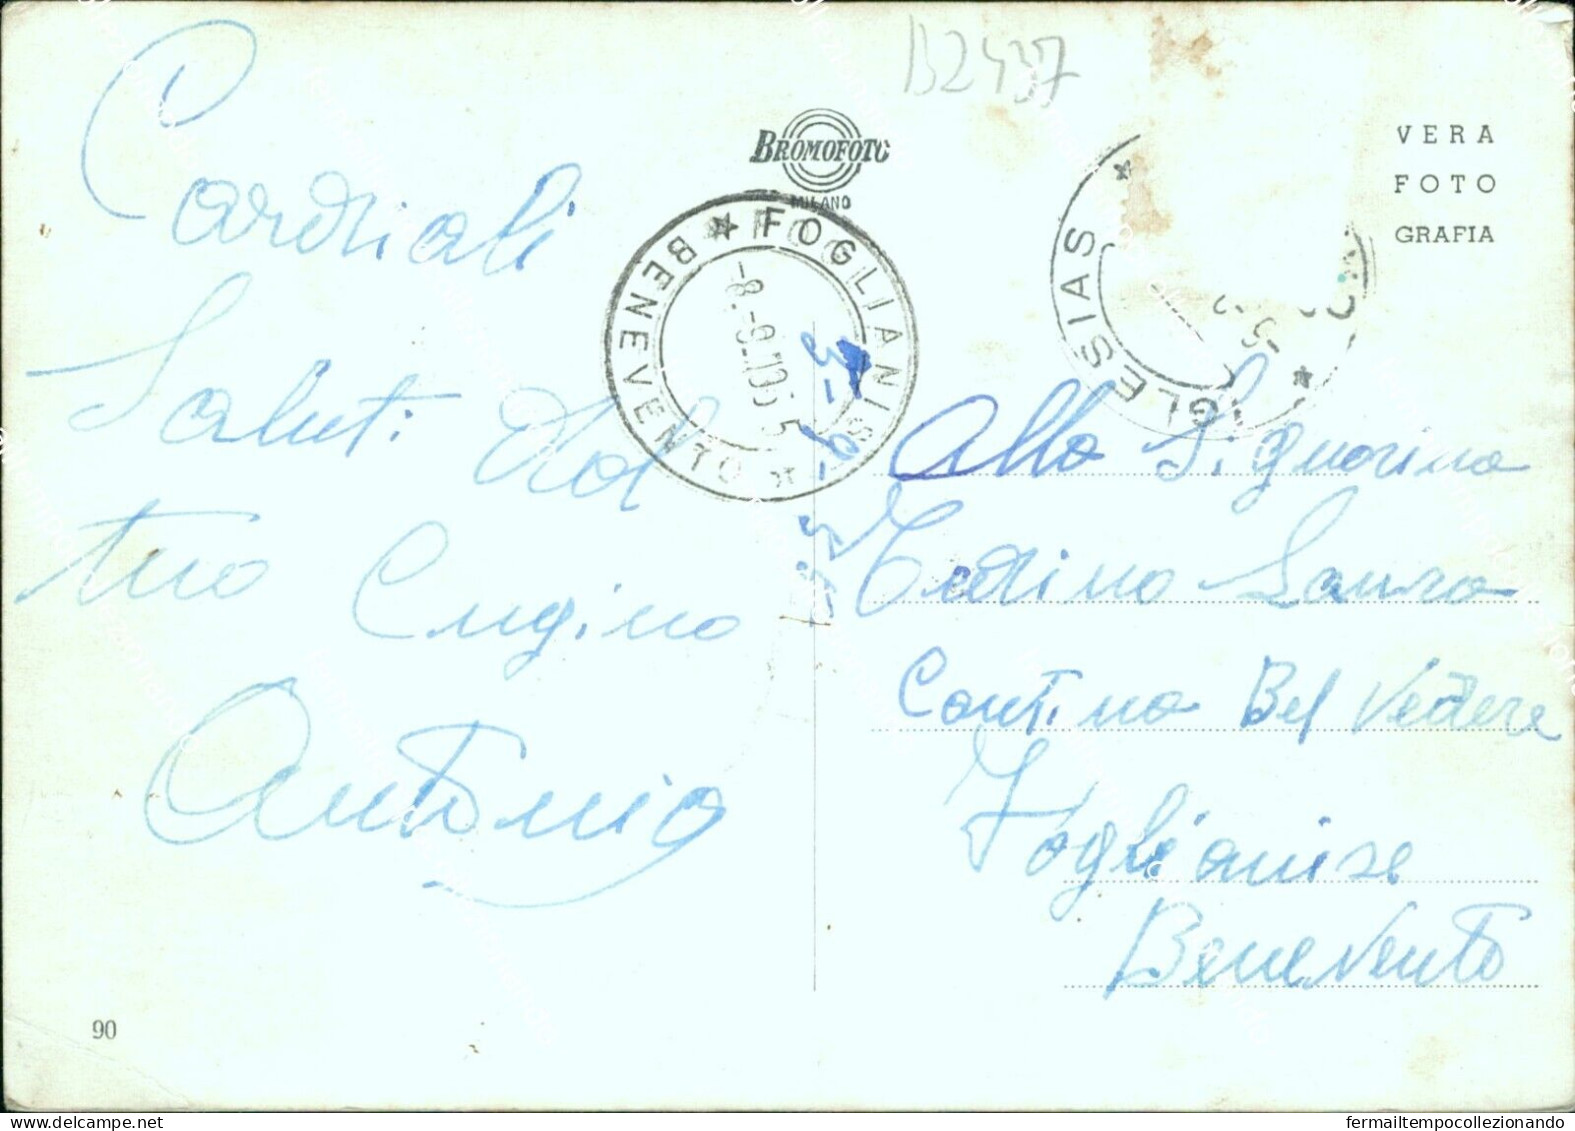 B2437
BROMOFOTO
MILANO
VERA
FOTO
GRAFIA
FOGLIANISE
BENEVENTO
-8.-9.1955
GLESIAS
Cordiali
Saluti dal
tuo Cugino
Antonio
3-9-55
Alla Signorina
Pedino Laura
Cantina Bel Vedere
Foglianise
Benevento
90
fermailtempocollezionando